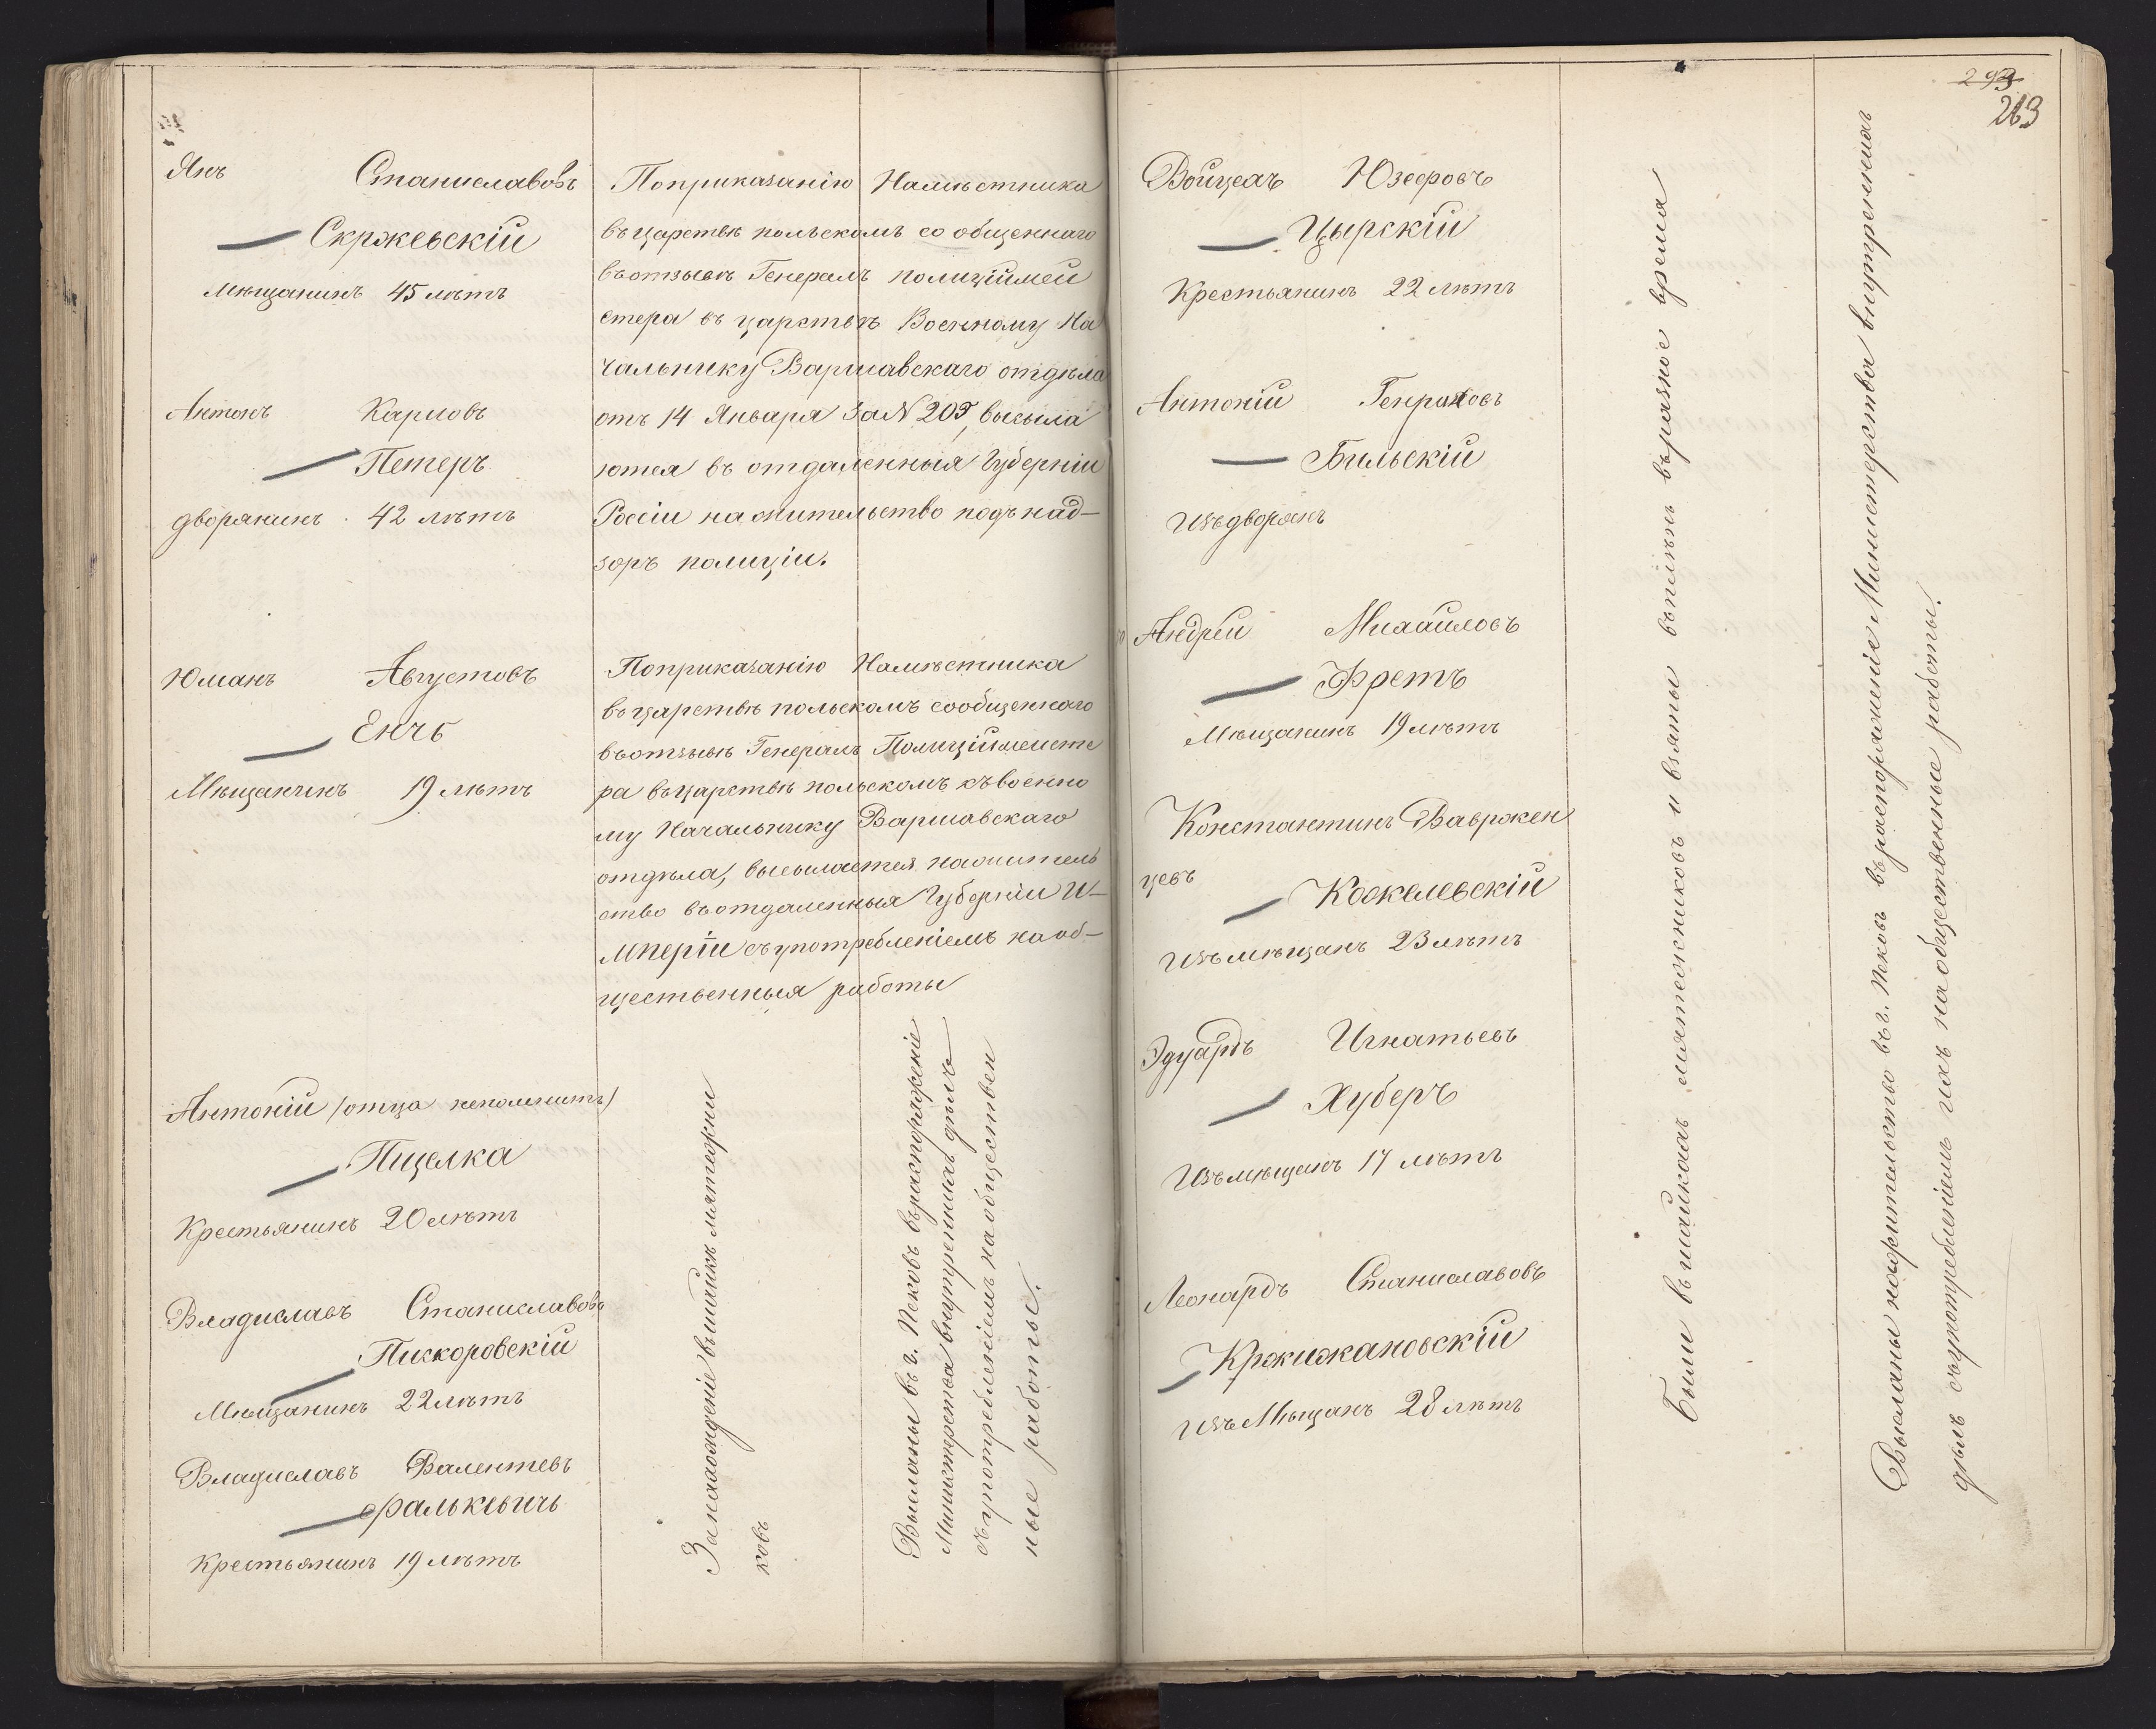 Янъ Станиславовъ
Скржевскій
Мѣщанинъ 45 лѣтъ
Антонъ Карловъ
Петеръ
дворянинъ 42 лѣтъ
Юліанъ Августовъ
Енчъ
Мѣщанинъ 19 лѣтъ
Антоній /отца непомнитъ/
Пщелка
Крестьянинъ 20 лѣтъ
Владиславъ Станиславовъ
Пискоровскій
Мѣщанинъ 22 лѣтъ
Владиславъ Валентевъ
Фалькевичъ
Крестьянинъ 19 лѣтъ
Поприказанію Намѣстника
въ царствѣ польскомъ со общеннаго
въ отзывѣ Генералъ полиціймей
стера въ царствѣ Военному На
чальнику Варшавскаго отдѣла
отъ 14 Января За N 205, высыла
ются въ отдаленныя Губерніи
Россіи на жительство подъ над–
зоръ полиціи.
Поприказанію Намѣстника
въ царствѣ польскомъ сообщеннаго
въ отзывѣ Генералъ Полиціймейсте
ра въ царствѣ польскомъ къ военно
му Начальнику Варшавскаго
отдѣла, высылается на житель
ство въ отдаленныя Губерніи И–
мперіи съ употребленіемъ на об–
щественныя работы
За нахожденіе въ шайкѣ мятежни
ковъ
Высланы въ г. Псковъ въ распоряженіе
Министерства внутреннихъ дѣлъ
съ употребленіемъ на обществен
ные работы.
293
263
Войцехъ Юзефовъ
Цырскій
Крестьянинъ 22 лѣтъ
Антоній Генриховъ
Бильскій
Изъ дворянъ
Андрей Михайловъ
Фретъ
Мѣщанинъ 19 лѣтъ
Константинъ Вавржен
цевъ
Коскелевскій
Изъ мѣщанъ 23 лѣтъ
Эдуардъ Игнатьевъ
Хуберъ
Изъ мѣщанъ 17 лѣтъ
Леонардъ Станиславовъ
Кржижановскій
Изъ Мѣщанъ 28 лѣтъ
Были въ шайкахъ мятежниковъ и взяты въ плѣнъ въ разное время
Высланы на жительство въ г. Псковъ въ распоряженіе Министерства внутреннихъ
дѣлъ съ употребленіемъ ихъ на общественные работы.